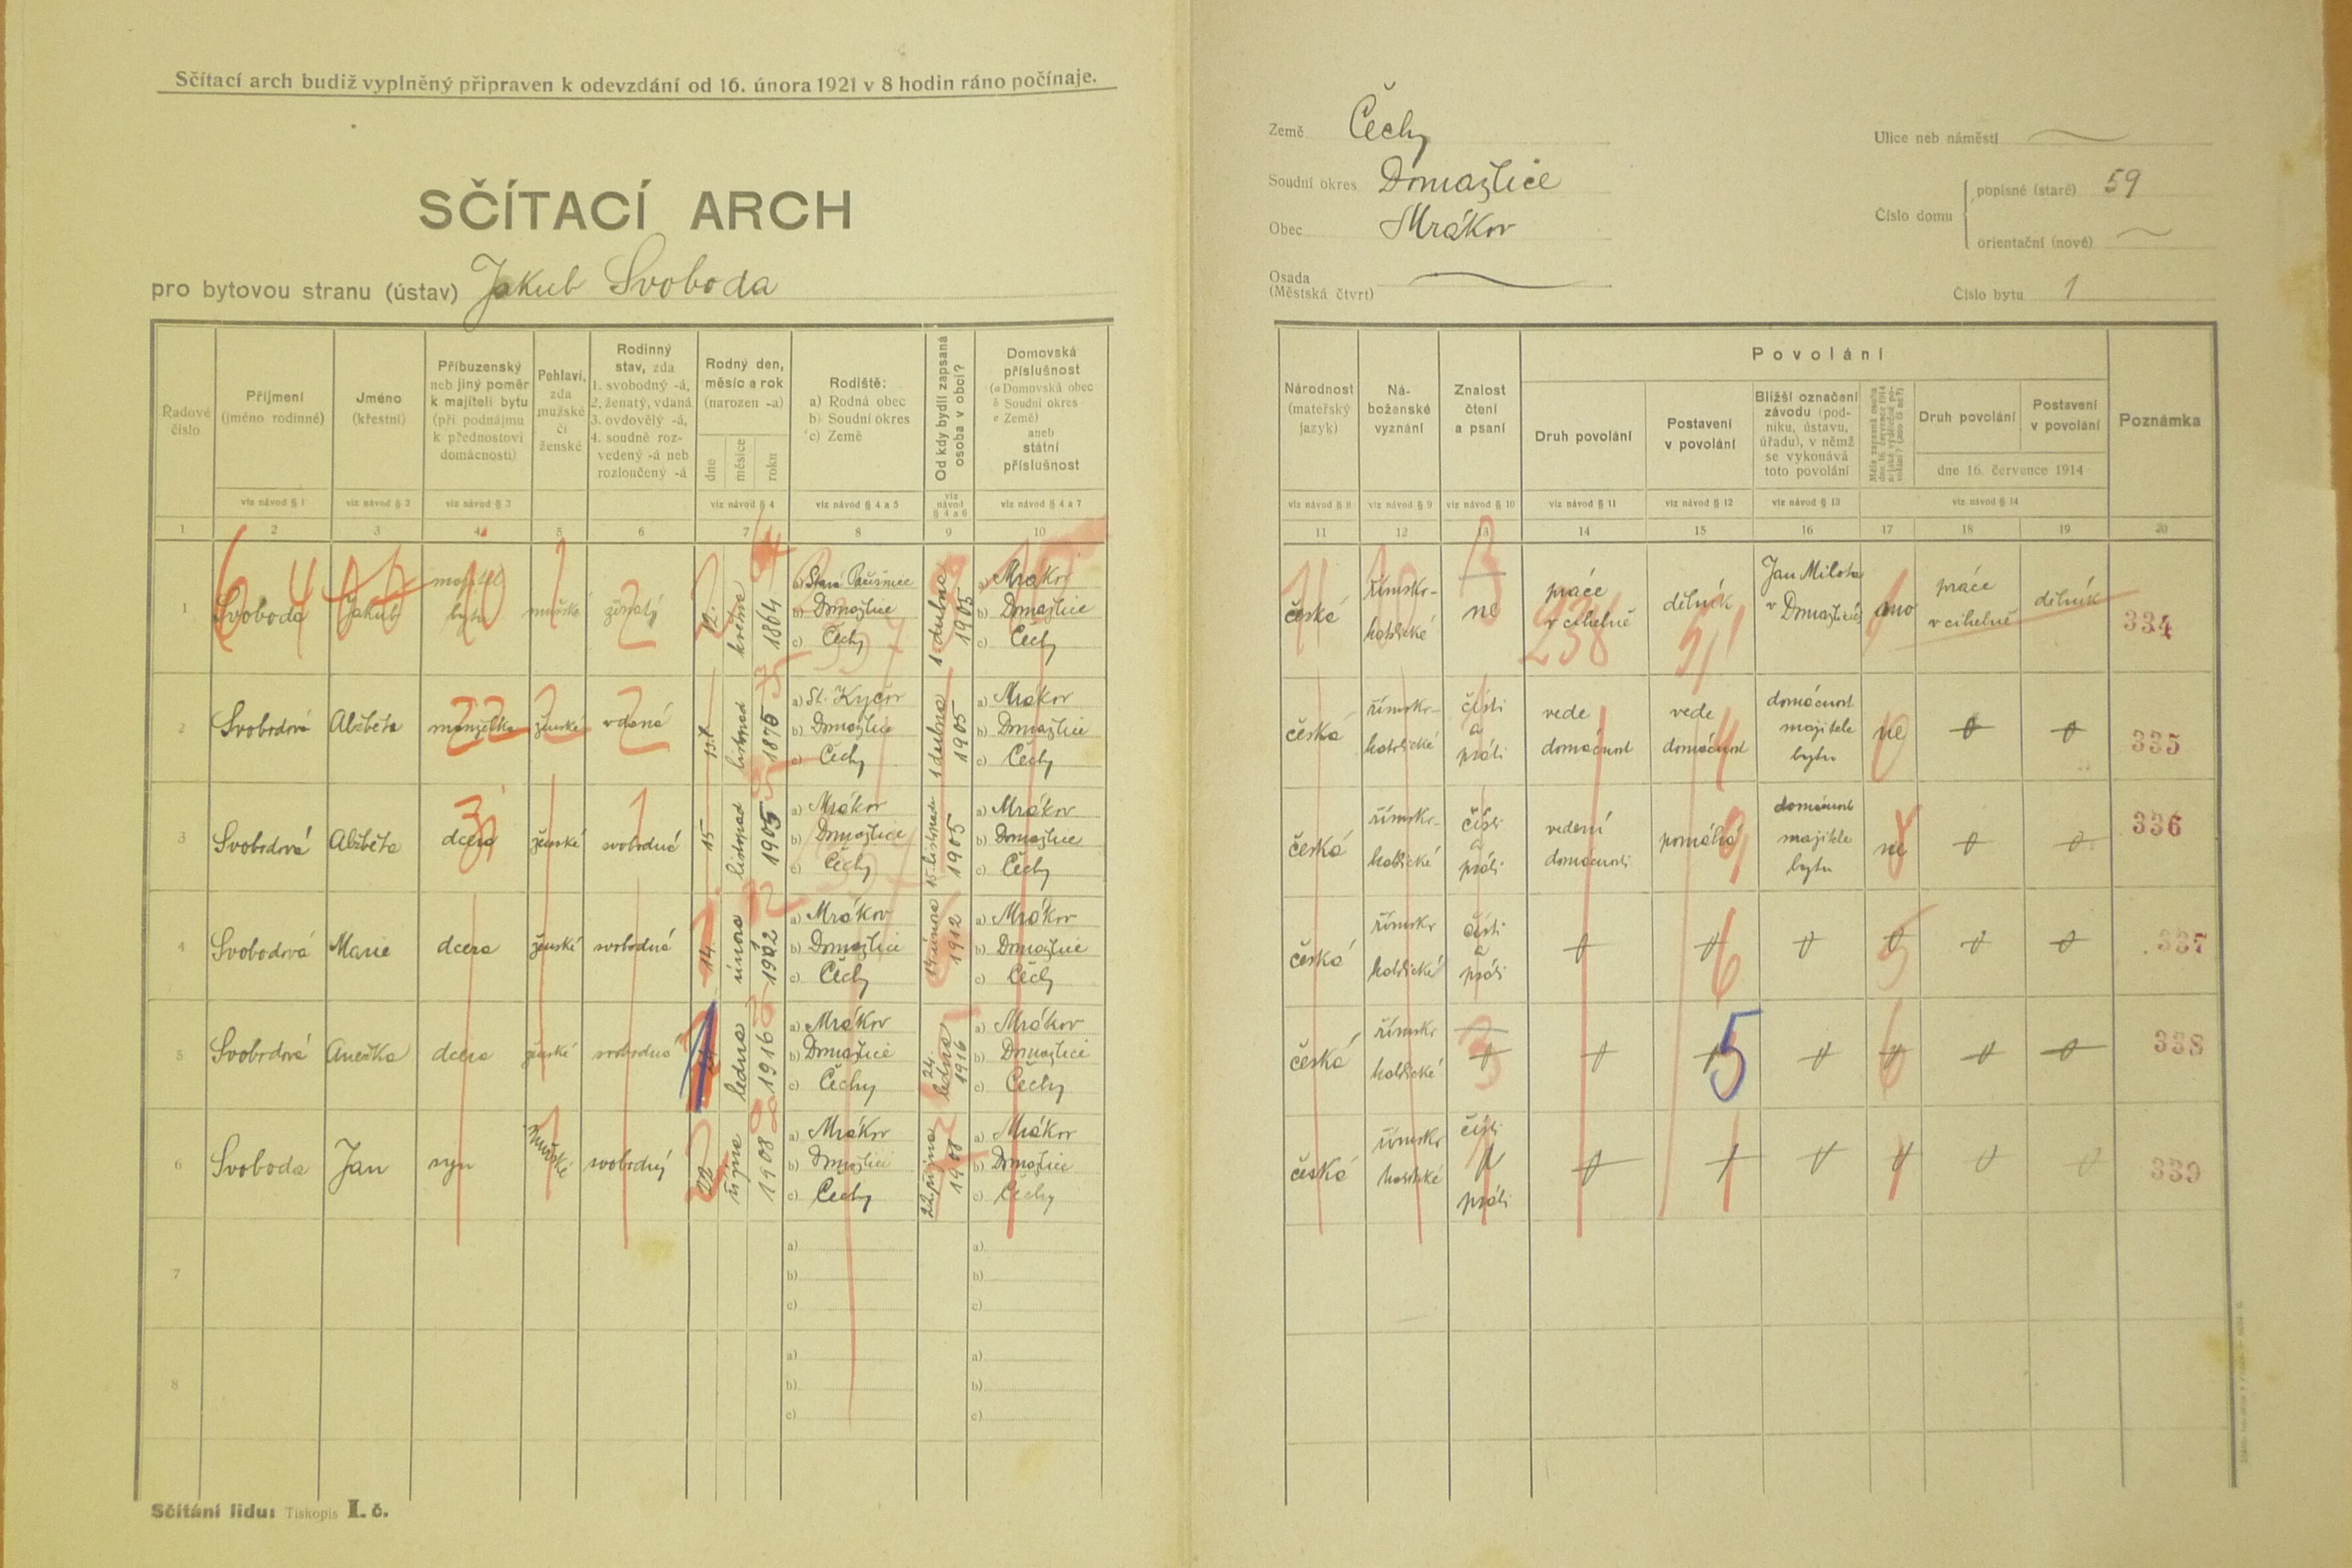 Sčítací arch budiž vyplněný připraven k odevzdání od 16. února 1921 v 8 hodin ráno počínaje.
SČÍTACÍ ARCH
pro bytovou stranu (ústav) Jakub Svoboda
Země Čechy
Soudní okres Domažlice
Obec Mrákov
Osada
(Městská čtvrť)
Ulice neb náměstí
Číslo domu
popisné (staré) 59
orientační (nové)
Číslo bytu 1
Řadové číslo
Příjmení (jméno rodinné)
Jméno (křestní)
Příbuzenský neb jiný poměr k majiteli bytu (při podnájmu k přednostovi domácnosti)
Pohlaví, zda mužské či ženské
Rodinný stav, zda 1. svobodný -á, 2. ženatý, vdaná 3. ovdovělý -á, 4. soudně rozvedený -á neb rozloučený -á
Rodný den, měsíc a rok (narozen -a)
dne měsíce roku
Rodiště: a) Rodná obec b) Soudní okres c) Země
Od kdy bydlí zapsaná osoba v obci?
Domovská příslušnost (a Domovská obec b Soudní okres c Země) aneb státní příslušnost
viz návod § 1 viz návod § 2 viz návod § 3 viz návod § 4 viz návod § 4 a 5 viz návod § 4 a 6 viz návod § 4 a 7
1 2 3 4 5 6 7 8 9 10
Národnost (mateřský jazyk)
Náboženské vyznání
Znalost čtení a psaní
Povolání
Druh povolání
Postavení v povolání
Bližší označení závodu (podniku, ústavu, úřadu), v němž se vykonává toto povolání
Druh povolání
Postavení v povolání
dne 16. července 1914
Poznámka
viz návod § 8 viz návod § 9 viz návod § 10 viz návod § 11 viz návod § 12 viz návod § 13 viz návod § 14
11 12 13 14 15 16 17 18 19 20
1 Svoboda Jakub majitel bytu mužské ženatý 12. května 1864 b) Domažlice c) Čechy 1 dubna 1905 a) Mrákov b) Domažlice c) Čechy
česká římsko-katolické ne práce v cihelně dělník Jan Milota v Domažlicích ano práce v cihelně dělník 334
2 Svobodová Alžběta manželka ženské vdaná listopad 1875 a) St. Kyčov b) Domažlice c) Čechy 1 dubna 1905 a) Mrákov b) Domažlice c) Čechy
česká římsko-katolické čísti a psáti vede domácnost vede domácnost domácnost majitele bytu ne 0 0 335
3 Svobodová Alžběta dcera ženské svobodná 15 listopad 1905 a) Mrákov b) Domažlice c) Čechy 15. listopadu 1905 a) Mrákov b) Domažlice c) Čechy
česká římsko-katolické čísti a psáti vedení domácnosti pomáhá domácnost majitele bytu ne 0 0 336
4 Svobodová Marie dcera ženské svobodná 14. února 1912 a) Mrákov b) Domažlice c) Čechy 14 února 1912 a) Mrákov b) Domažlice c) Čechy
česká římsko katolické čísti a psáti 0 0 0 0 0 0 337
5 Svobodová Anežka dcera ženské svobodná ledna 1916 a) Mrákov b) Domažlice c) Čechy 24. ledna 1916 a) Mrákov b) Domažlice c) Čechy
česká římsko katolické 0 0 0 0 0 0 0 338
6 Svoboda Jan syn mužské svobodný 22 října 1908 a) Mrákov b) Domažlice c) Čechy 22 října 1908 a) Mrákov b) Domažlice c) Čechy
česká římsko katolické čísti a psáti 0 0 0 0 0 0 339
7 a) b) c) a) b) c)
8 a) b) c) a) b) c)
Sčítání lidu: Tiskopis I. č.